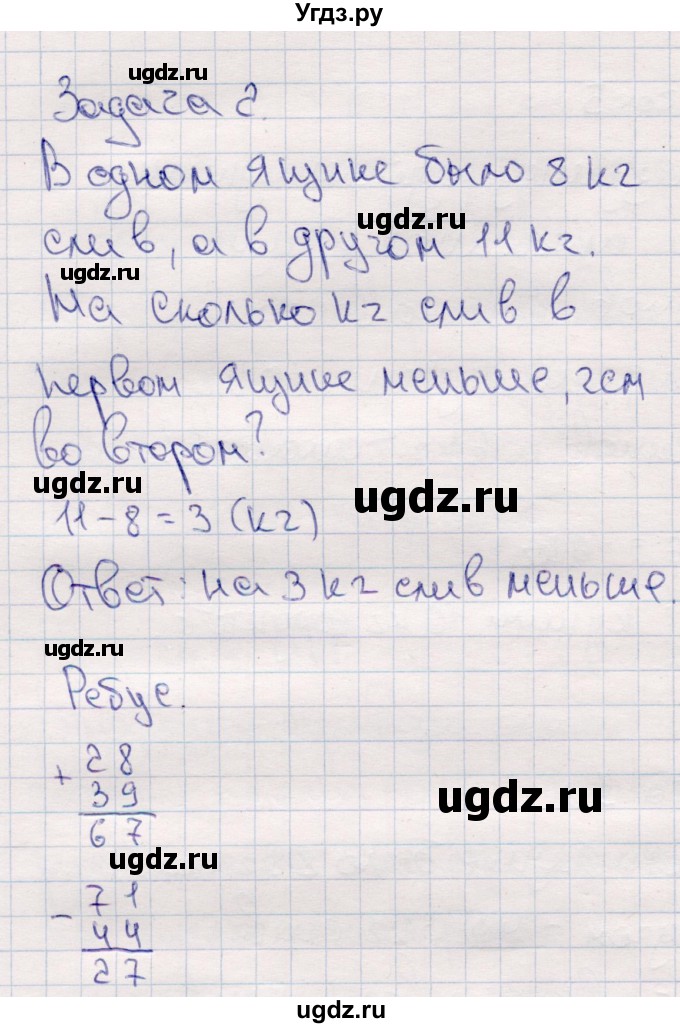 Угдз.ру
ugdz.ru
Задача 2.
В одном ящике было 8 кг
ugdz.ru
слив, а в другом 11 кг.
ugdz.ru
На сколько кг слив в
первом ящике меньше, чем
во втором?
ugdz.ru
ugdz.ru
11 - 8 = 3 (кг)
Ответ: на 3 кг слив меньше.
ugdz.ru
Ребус.
+ 28
39
67
ugdz.ru
ugdz.ru
- 71
44
27
ugdz.ru